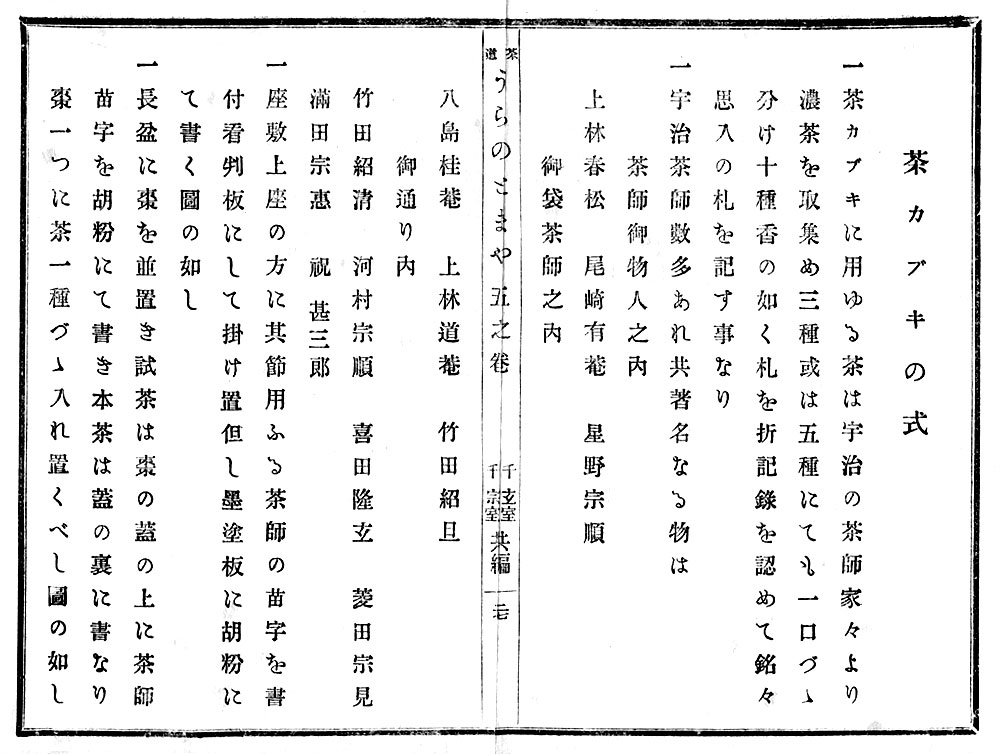 茶カブキの式
一茶カブキに用ゆる茶は宇治の茶師家々より
濃茶を取集め三種或は五種にても一口づゝ
分け十種香の如く札を折記錄を認めて銘々
思入の札を記す事なり
一宇治茶師數多あれ共著名なる物は
茶師御物人之内
上林春松 尾崎有菴 星野宗順
御袋茶師之内
茶道 うらのとまや 五之卷 千玄室 千宗室 共編 二七
八島桂菴 上林道菴 竹田紹旦
御通り内
竹田紹清 河村宗順 喜田隆玄 菱田宗見
滿田宗惠 祝甚三郎
一座敷上座の方に其節用ふる茶師の苗字を書
付看判板にして掛け置但し墨塗板に胡粉に
て書く圖の如し
一長盆に棗を並置き試茶は棗の蓋の上に茶師
苗字を胡粉にて書き本茶は蓋の裏に書なり
棗一つに茶一種づゝ入れ置くべし圖の如し